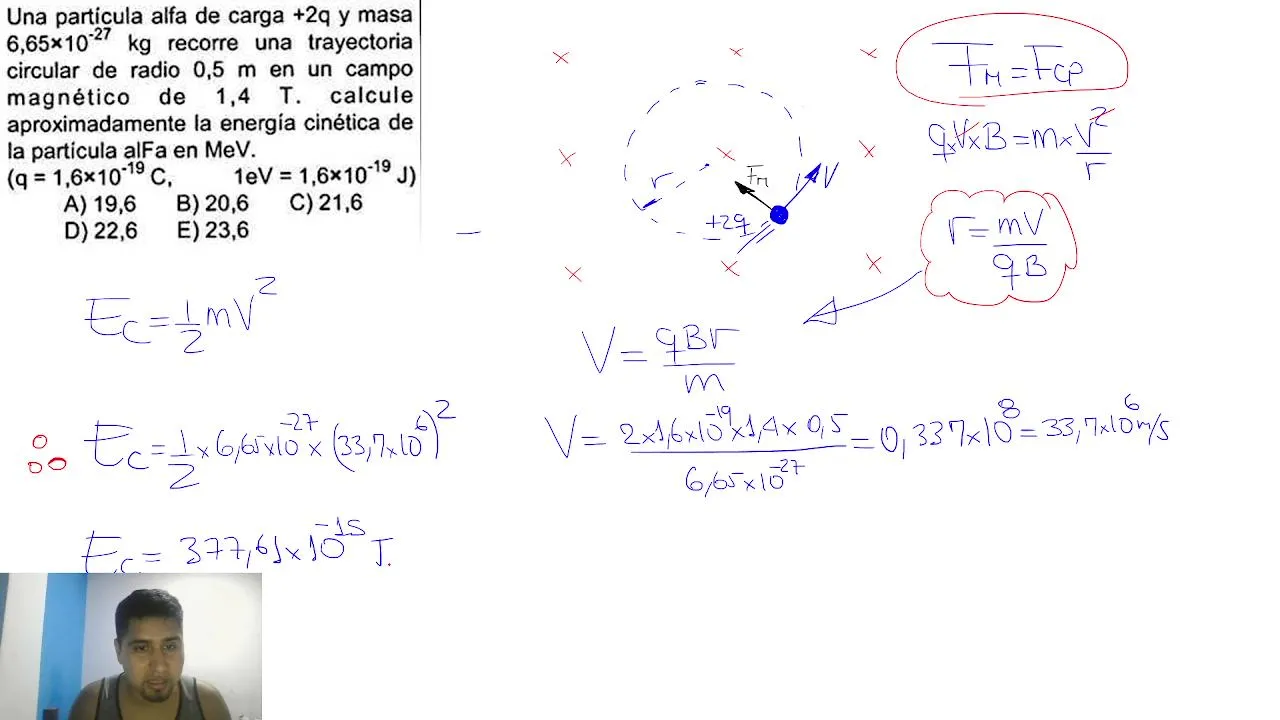 Una partícula alfa de carga +2q y masa
6,65×10⁻²⁷ kg recorre una trayectoria
circular de radio 0,5 m en un campo
magnético de 1,4 T. calcule
aproximadamente la energía cinética de
la partícula alFa en MeV.
(q = 1,6×10⁻¹⁹ C, 1eV = 1,6×10⁻¹⁹ J)
A) 19,6 B) 20,6 C) 21,6
D) 22,6 E) 23,6
F_M = F_CP
q×V×B = m×V²/r
r = mV/qB
r
F_M
V
+2q
E_C = 1/2 mV²
V = qBr/m
V = 2×1,6×10⁻¹⁹×1,4×0,5/6,65×10⁻²⁷ = 0,337×10⁸ = 33,7×10⁶ m/s
E_C = 1/2 × 6,65×10⁻²⁷ × (33,7×10⁶)²
E_C = 377,61×10⁻¹⁵ J.